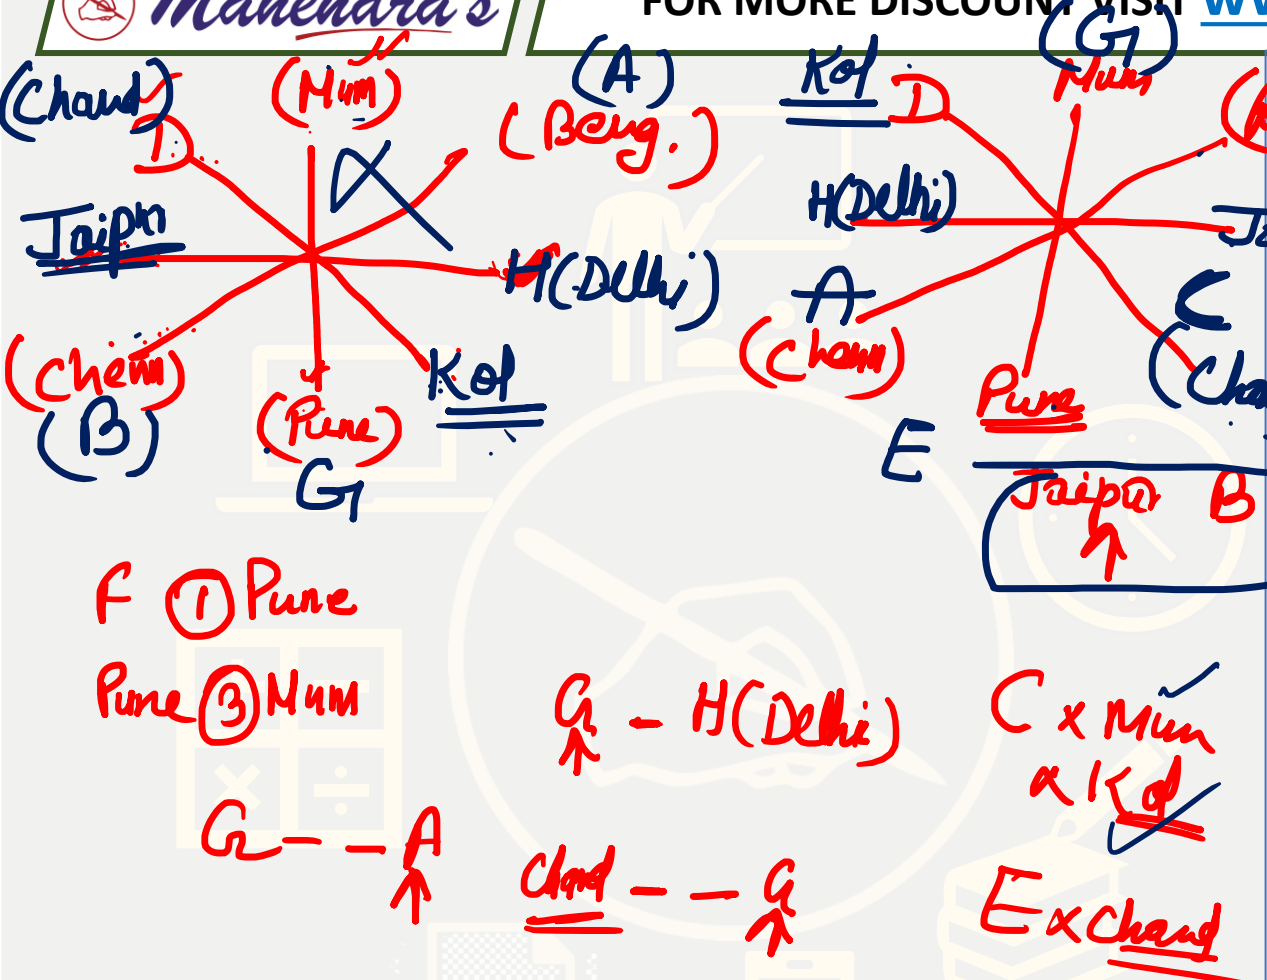 Mahendra's
FOR MORE DISCOUNT VISIT WW
(Chand)
D
(Mum)
(A)
(Beng.)
Jaipur
H(Delhi)
(Chenn)
(B)
(Pune)
G
Kol
Kol
D
(G)
Mum
H(Delhi)
Ja
A
(Chenn)
C
(Cha
Pune
E
Jaipur B
F ① Pune
Pune ③ Mum
G - H(Delhi)
C x Mum
x Kol
G - - A
Chand - - G
E x Chand